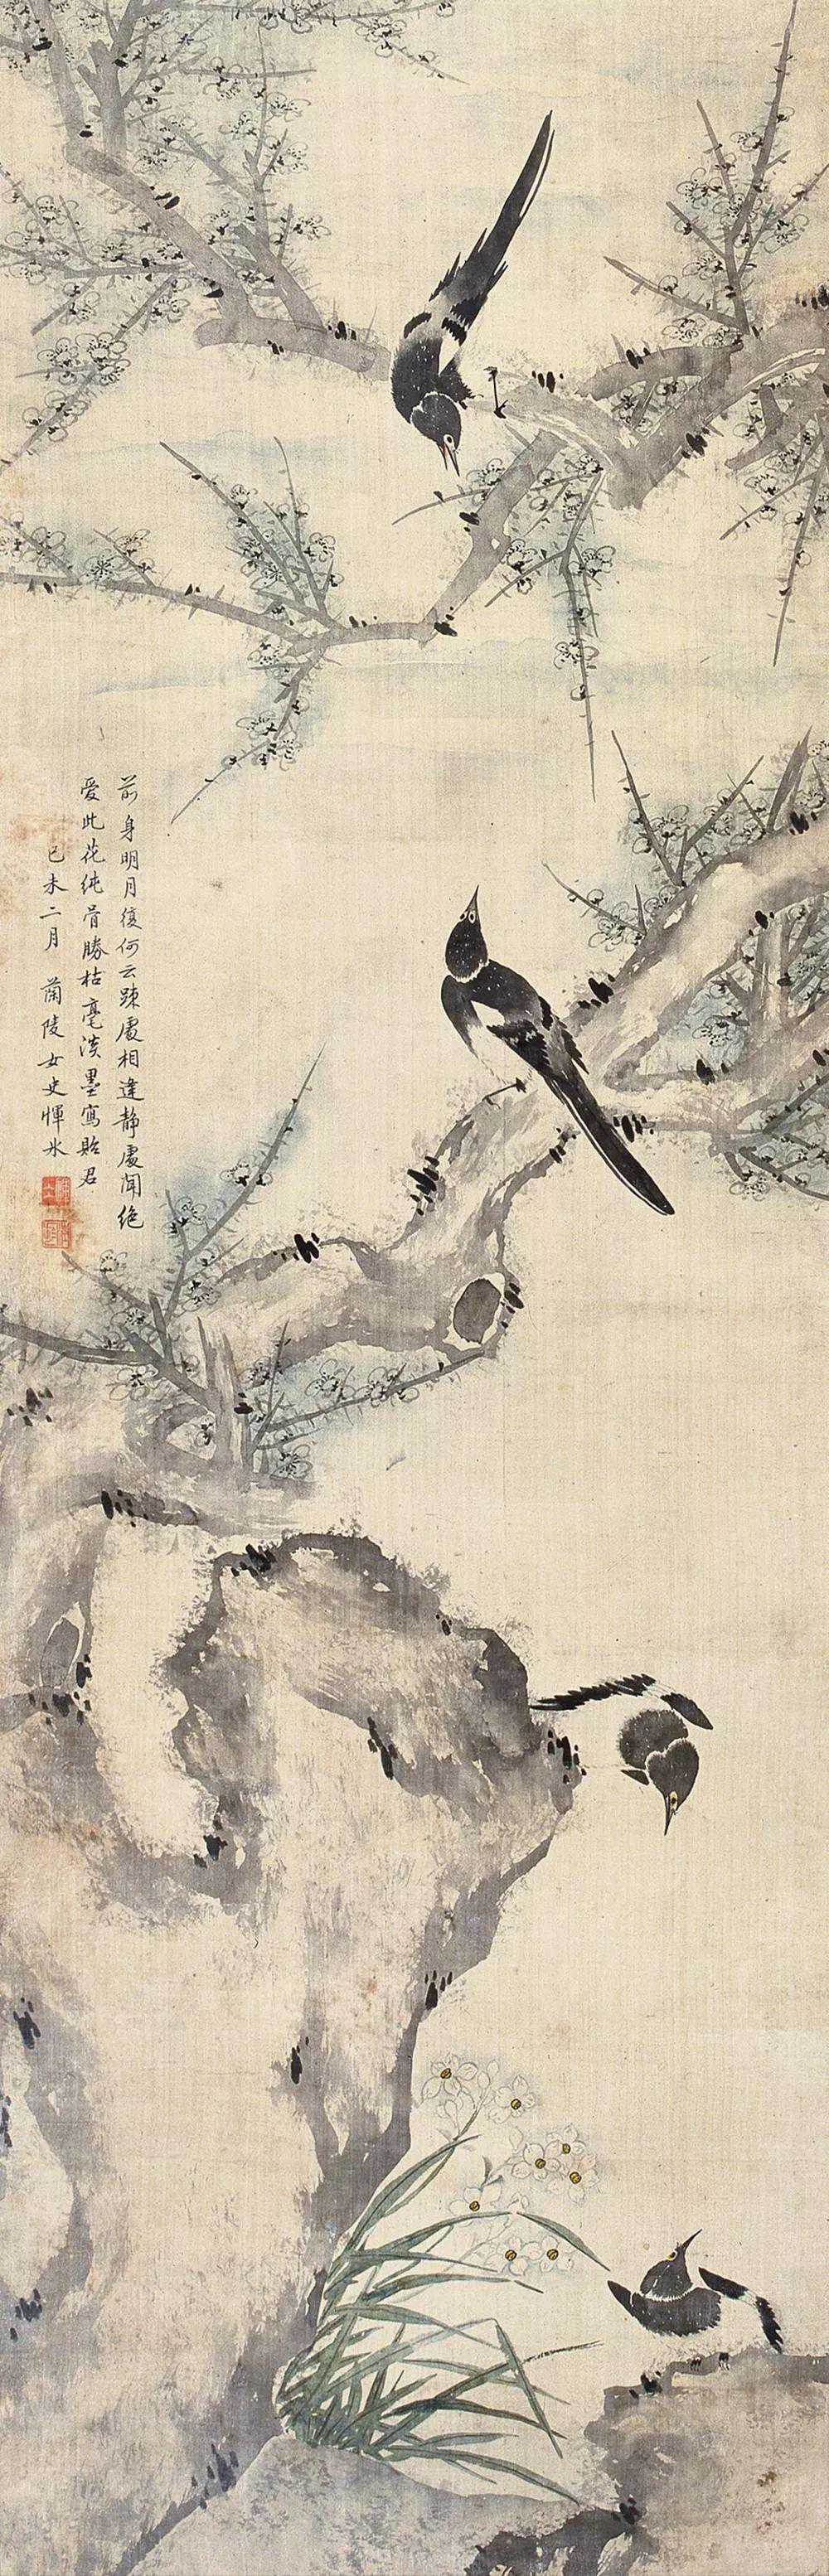 前身明月復何云踈處相逢靜處聞絶
爱此花純骨勝枯毫淡墨寫貽君
己未二月 蘭陵女史惲冰